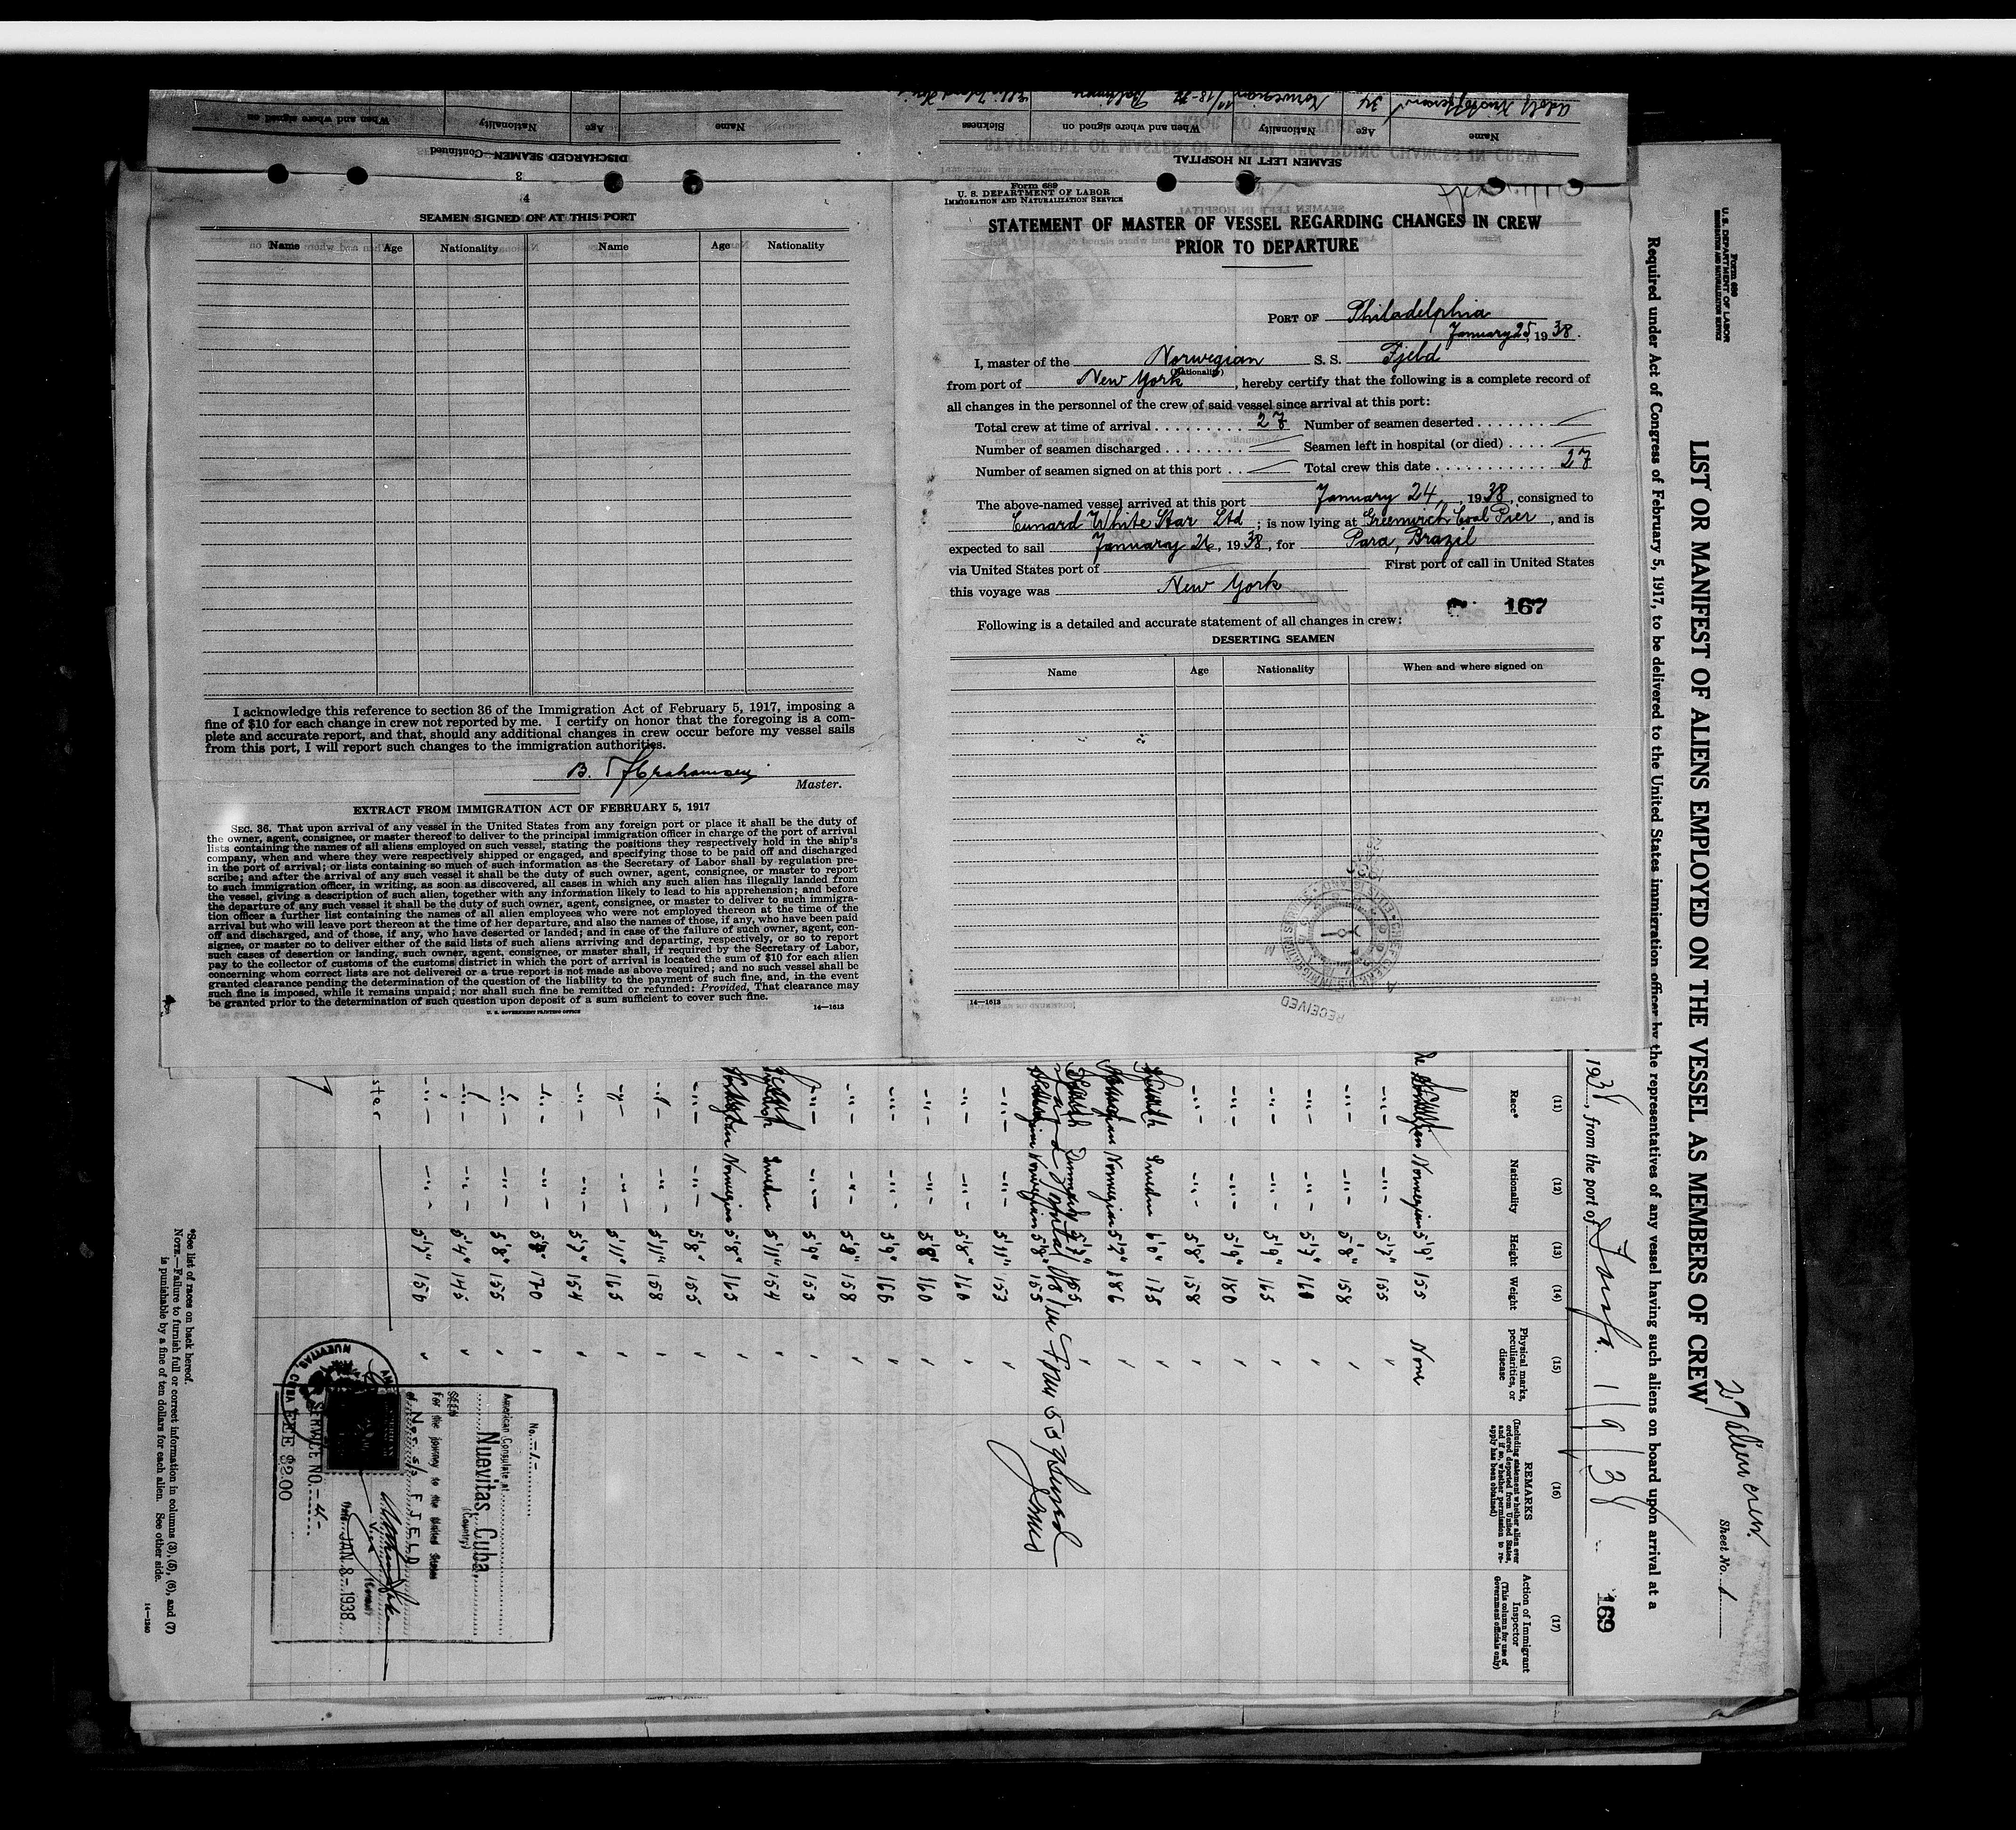 DISCHARGED SEAMEN Continued
Name Age Nationality When and where signed on
3
SEAMEN LEFT IN HOSPITAL
Name Age Nationality When and where signed on Sickness
34 Norwegian
4
SEAMEN SIGNED ON AT THIS PORT
Name Age Nationality Name Age Nationality
I acknowledge this reference to section 36 of the Immigration Act of February 5, 1917, imposing a
fine of $10 for each change in crew not reported by me. I certify on honor that the foregoing is a com-
plete and accurate report, and that, should any additional changes in crew occur before my vessel sails
from this port, I will report such changes to the immigration authorities.
B. Abrahamsen
Master.
EXTRACT FROM IMMIGRATION ACT OF FEBRUARY 5, 1917
SEC. 36. That upon arrival of any vessel in the United States from any foreign port or place it shall be the duty of
the owner, agent, consignee, or master thereof to deliver to the principal immigration officer in charge of the port of arrival
lists containing the names of all aliens employed on such vessel, stating the positions they respectively hold in the ship's
company, when and where they were respectively shipped or engaged, and specifying those to be paid off and discharged
in the port of arrival; or lists containing so much of such information as the Secretary of Labor shall by regulation pre-
scribe; and after the arrival of any such vessel it shall be the duty of such owner, agent, consignee, or master to report
to such immigration officer, in writing, as soon as discovered, all cases in which any such alien has illegally landed from
the vessel, giving a description of such alien, together with any information likely to lead to his apprehension; and before
the departure of any such vessel it shall be the duty of such owner, agent, consignee, or master to deliver to such immigra-
tion officer a further list containing the names of all alien employees who were not employed thereon at the time of the
arrival but who will leave port thereon at the time of her departure, and also the names of those, if any, who have been paid
off and discharged, and of those, if any, who have deserted or landed; and in case of the failure of such owner, agent, con-
signee, or master so to deliver either of the said lists of such aliens arriving and departing, respectively, or so to report
such cases of desertion or landing, such owner, agent, consignee, or master shall, if required by the Secretary of Labor,
pay to the collector of customs of the customs district in which the port of arrival is located the sum of $10 for each alien
concerning whom correct lists are not delivered or a true report is not made as above required; and no such vessel shall be
granted clearance pending the determination of the question of the liability to the payment of such fine, and, in the event
such fine is imposed, while it remains unpaid; nor shall such fine be remitted or refunded: Provided, That clearance may
be granted prior to the determination of such question upon deposit of a sum sufficient to cover such fine.
U. S. GOVERNMENT PRINTING OFFICE 14—1613
Form 689
U. S. DEPARTMENT OF LABOR
IMMIGRATION AND NATURALIZATION SERVICE
STATEMENT OF MASTER OF VESSEL REGARDING CHANGES IN CREW
PRIOR TO DEPARTURE
PORT OF Philadelphia
January 25, 1938.
I, master of the Norwegian S. S. Fjeld
(Nationality)
from port of New York, hereby certify that the following is a complete record of
all changes in the personnel of the crew of said vessel since arrival at this port:
Total crew at time of arrival 27 Number of seamen deserted
Number of seamen discharged Seamen left in hospital (or died)
Number of seamen signed on at this port Total crew this date 27
The above-named vessel arrived at this port January 24, 1938, consigned to
Cunard White Star Ltd; is now lying at Greenwich Coal Pier, and is
expected to sail January 26, 1938, for Para, Brazil
via United States port of First port of call in United States
this voyage was New York
167
Following is a detailed and accurate statement of all changes in crew:
DESERTING SEAMEN
Name Age Nationality When and where signed on
14—1613
RECEIVED
Form 689
U. S. DEPARTMENT OF LABOR
IMMIGRATION AND NATURALIZATION SERVICE
27 alien crew.
Sheet No. 1
LIST OR MANIFEST OF ALIENS EMPLOYED ON THE VESSEL AS MEMBERS OF CREW
Required under Act of Congress of February 5, 1917, to be delivered to the United States immigration officer by the representatives of any vessel having such aliens on board upon arrival at a
1938, from the port of
169
(11) (12) (13) (14) (15) (16) (17)
Race* Nationality Height Weight Physical marks, peculiarities, or disease
REMARKS
(Including statement whether alien ever ordered deported from United States, and if so, whether permission to re-apply has been obtained)
Action of Immigrant Inspector
(This column for use of Government officials only)
Norwegian 5'9" 155 None
-"- -"- 5'7" 155 "
-"- -"- 5'8" 158 "
-"- -"- 5'7" 160 "
-"- -"- 5'9" 165 "
-"- -"- 5'9" 180 "
-"- -"- 5'8" 158 "
Sweden 6'0" 175 "
Norwegian 5'7" 186 "
5'7" 155 "
Norwegian 5'8" 155
-"- -"- 5'11" 153 "
-"- -"- 5'8" 160 "
-"- -"- 5'8" 160 "
-"- -"- 5'9" 166 "
-"- -"- 5'8" 158 "
-"- -"- 5'9" 153 "
Sweden 5'11" 154 "
Norwegian 5'8" 165 "
-"- -"- 5'8" 155 "
-"- -"- 5'11" 158 "
-"- -"- 5'11" 165 "
-"- -"- 5'7" 154 "
-"- -"- 5'8" 170 "
-"- -"- 5'8" 155 "
-"- -"- 5'4" 145 "
-"- -"- 5'7" 150 "
No. -1-
American Consulate at
Nuevitas, Cuba
(Country)
SEEN
For the journey to the United States
of Nor. s/s FJELD
Date JAN. 8-1938
SERVICE NO. -4-
FEE $2.00
NUEVITAS, CUBA
*See list of races on back hereof.
NOTE.—Failure to furnish full or correct information in columns (3), (5), (6), and (7)
is punishable by a fine of ten dollars for each alien. See other side.
14—1240